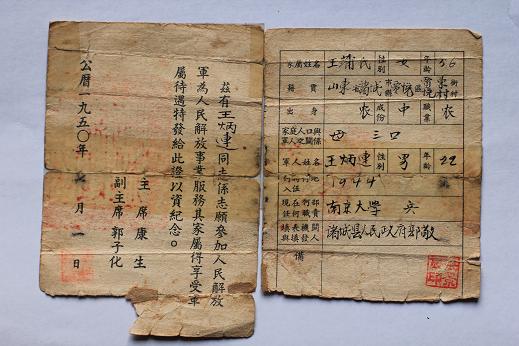 茲有王炳連同志係志願參加人民解放
軍為人民解放事業服務其家屬得享受軍
屬待遇特發給此證以資紀念。
主席康生
副主席郭子化
公曆一九五〇年 七月一日
家屬姓名 王蒲氏 性別 女 年齡 56
籍貫 山東 諸城 市縣 區 村
出身 农 成份 中 職業 农
家庭人口與軍人之關係 母 三口
軍人姓名 王炳連 性別 男 年齡 22
1944
南京大學
諸城縣人民政府郭敬
備